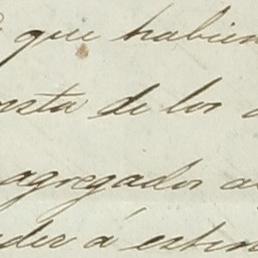 que habien
osta de los
agregados a
der á estin